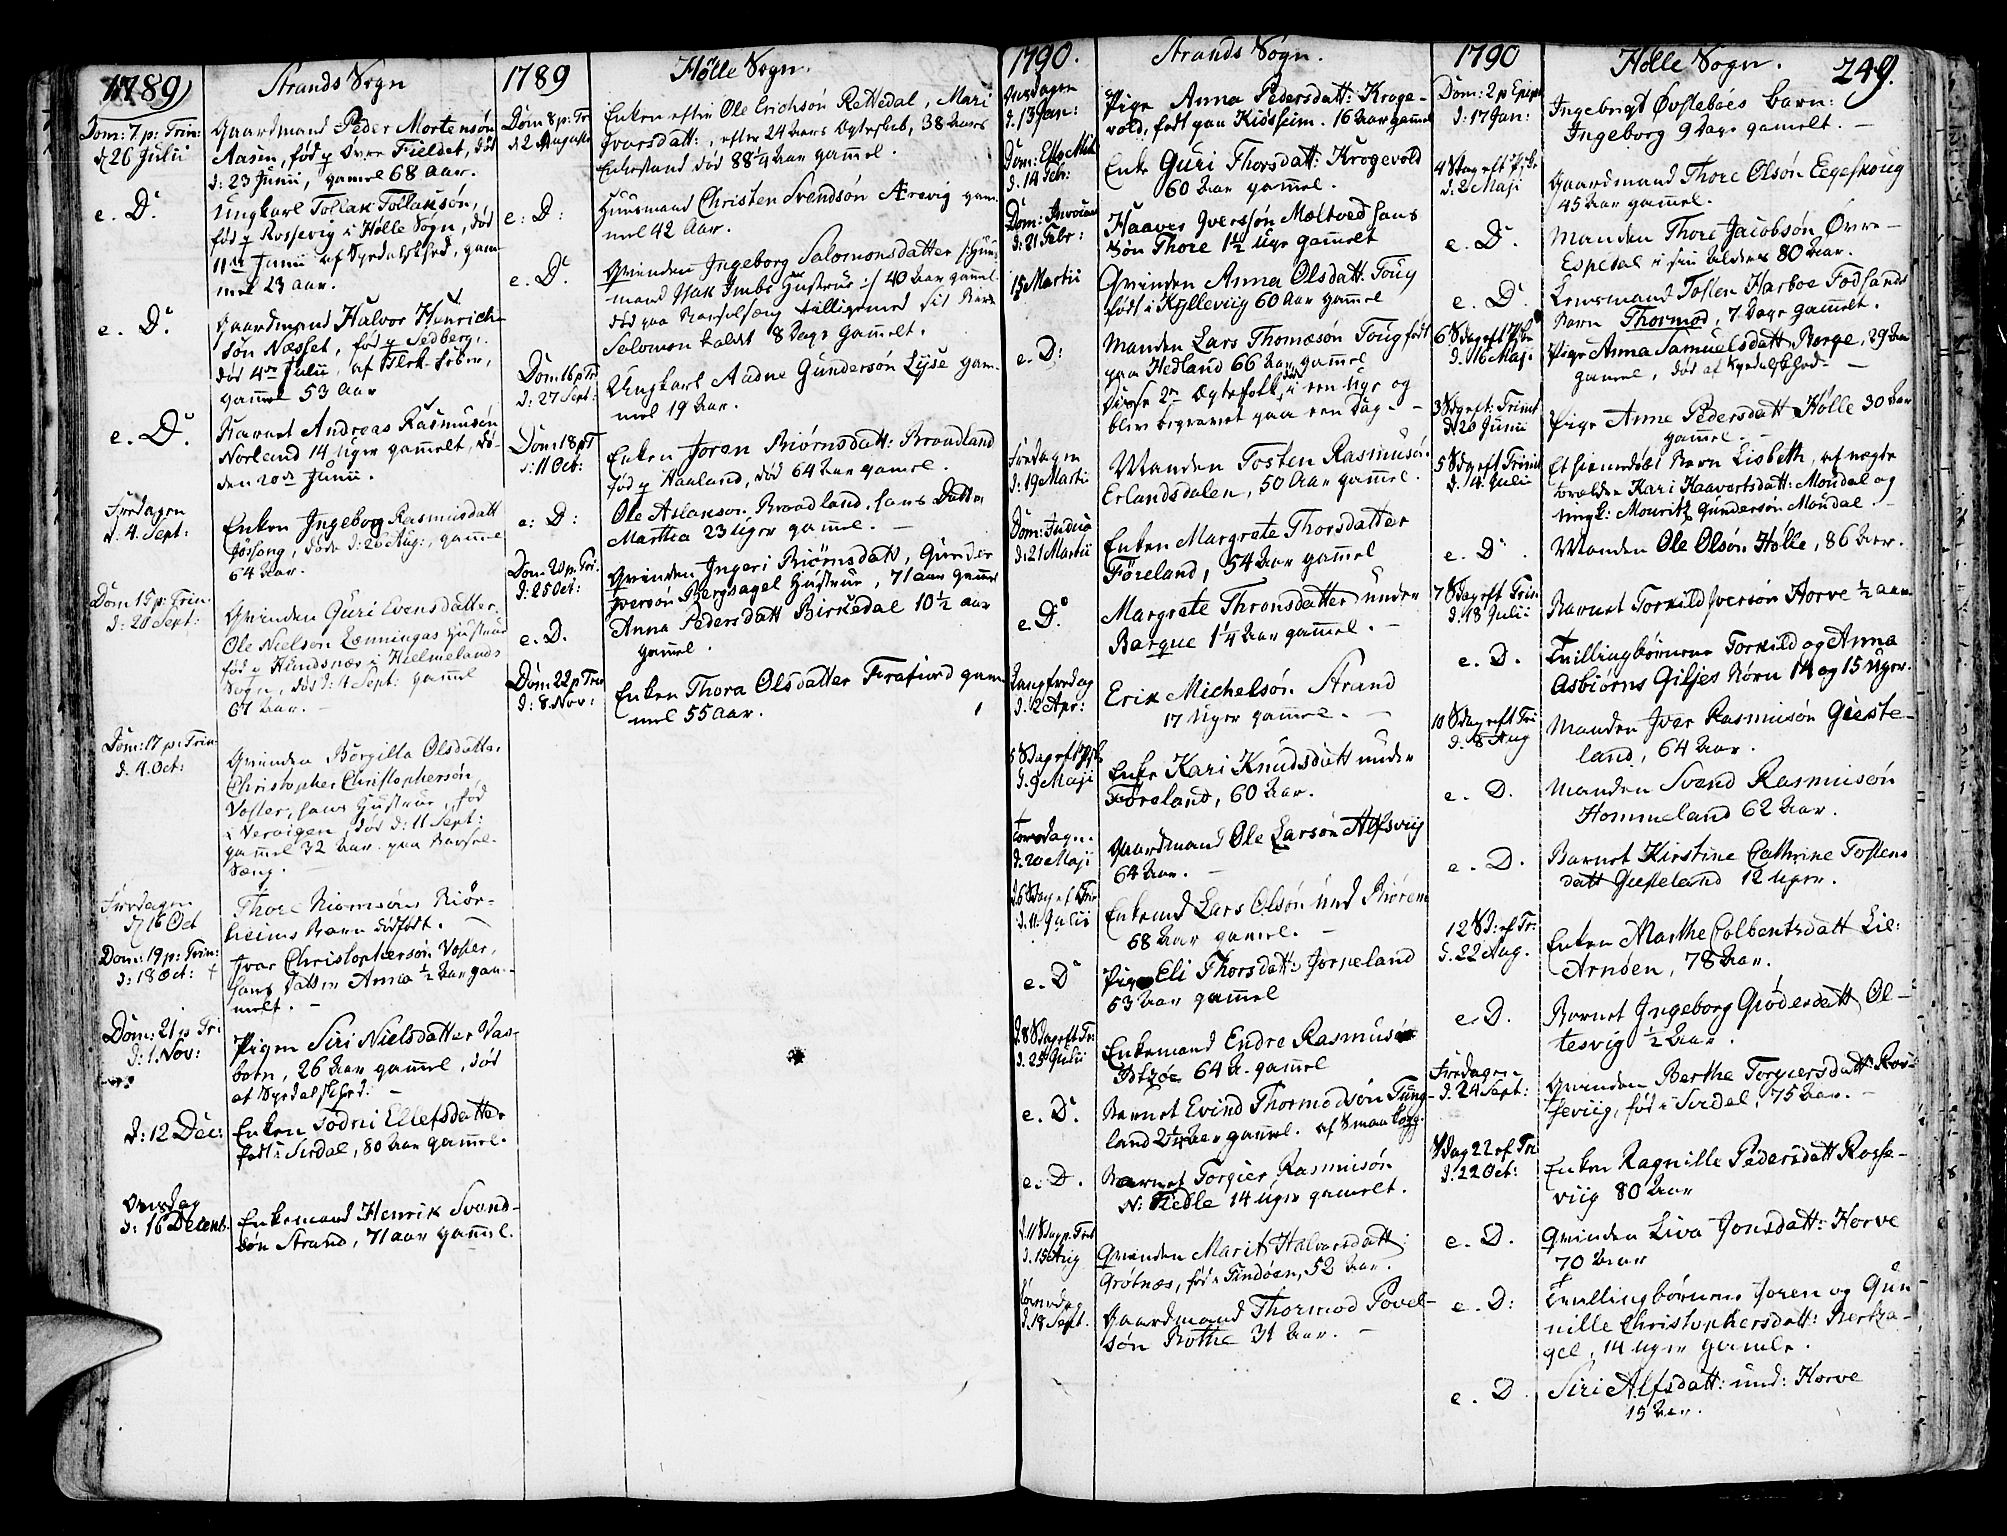 1789
Strands Sogn
Dom: 7 p: Trin:
d 26 Julii
Gaardmand Peder Mortensøn
Aasen, fød p Øvre Fieldet, død
d: 23 Junii, gamel 68 Aar.
e. D.
Ungkarl Tollak Tollaksøn,
fød p Rossevig i Hølle Sogn, død
11te Junii af Syrdalskhed, gam-
mel 23 aar.
e. D.
Gaardmand Halvor Henrich-
søn Næsset, fød p Sedberg,
død 4de Julii, af Flek-feber,
gammel 53 Aar
e. D.
Barnet Andreas Rasmusøn
Norland 14 Uger gammelt, dø-
den 20de Junii.
Fredagen
d. 4. Sept:
Enken Ingeborg Rasmusdatt
Jøssang, døde d: 26 Aug:, gammel
64 Aar.
Dom 15 p: Trin.
d: 20 Sept:
Qvinden Guri Evensdatter,
Ole Nielsøn Lænningas Hustrue
fød p Hundsnæs i Hielmelands
Sogn, død d: 4 Sept: gammel
61 Aar. –
Dom: 17 p: Trin
d. 4. Oct:
Qvinden Børgilla Olsdatter
Christopher Christophersøn,
Voster, hans Hustrue, fød
i Nervigen, død d: 11 Sept:
gammel 32 Aar. paa Barsel-
Sæng. –
Fredagen
d 16 Oct
Thore Biørnsøn Biør-
heims Barn dødfødt.
Dom: 19 p: Trin:
d: 18 Oct:
Ivar Christophersøn Voster,
hans Datter Anna ½ Aar gam-
melt. –
Dom: 21 p Tri
d: 1. Nov:
Pigen Siri Nielsdatter Vas-
botn, 26 Aar gammel, død
af Syrdalskhed. –
d: 12 Dec:
Enken Todni Ellefsdatter
født i Sirdal, 80 Aar gammel.
Onsdag
d: 16 Decemb.
Enkemand Henrik Svend-
søn Strand, 71 aar gammel.
1789
Hølle Sogn.
Dom 8 p: Tr
d 2 Augusti
Enken efter Ole Erichsøn Rettedal, Mari
Ivarsdatt:, efter 24 Aars Ægteskab, 38 Aars
Enkestand død 88¼ Aar gammel.
e: D:
Huusmand Christen Svendsøn Ærevig gam-
mel 42 Aar.
e. D.
Qvinden Ingeborg Salomonsdatter /: Huus-
mand Isak Imbs Hustrue :/ 40 Aar gammel
død paa Barselsæng tilligemed sit Barn
Salomon kaldt 8 Dage gammelt.
Dom 16 p Tr
d: 27 Sept:
Ungkarl Aadne Gundersøn Lyse gam-
mel 19 Aar.
Dom 18 p T
d: 11 Oct:
Enken Joren Biørnsdatt: Broadland
fød p Haaland, død 64 Aar gamel.
e: D:
Ole Aslaksøn Broadland, hans Datter
Marthea 23 Uger gammel. –
Dom. 20 p. Tri.
d: 25 Oct:
Qvinden Ingeri Biørnsdatt, Gunder
Iversøn Bergsagel Hustrue, 71 aar gammel
e. D.
Anna Pedersdatt Birkedal 10½ aar
gamel.
Dom 22 p Trin
d: 8. Nov:
Enken Thora Olsdatter Frafiord gam
mel 55 Aar.
1790.
Strands Sogn.
Onsdagen
d. 13 Jan:
Pige Anna Pedersdatt: Kroge-
vold, født paa Kidsheim. 16 Aar gammel
Dom: Esto Mih
d. 14 Febr:
Enke Guri Thorsdatt: Krogevold
60 Aar gammel.
Dom: Invocav
d: 21 Febr:
Haaver Iversøn Meltved hans
Søn Thore 1½ Uge gammelt
15 Martii
Qvinden Anna Olsdatt: Toug
født i Kyllevig 60 Aar gammel
e. D:
Manden Lars Thomæsøn Toug født
paa Hedland 66 Aar gammel
Disse 2de Ægtefolk døde i een Uge og
blev begravet paa een Dag. –
Fredagen
d: 19 Marti
Manden Tosten Rasmusøn
Erlandsdalen, 50 Aar gammel.
Dom: Judica
d: 21 Martii
Enken Margrete Thorsdatter
Føreland, 54 Aar gammel
e. D.
Margrete Thronsdatter under
Barque 1¼ Aar gammel. –
Langfredag
d: 2 Apr:
Erik Michelsøn Strand
17 Uger gammel. –
5 Sdag eft Psk
d. 9 Maji
Enke Kari Knudsdatt under
Føreland, 60 Aar.
Torsdagen.
d. 20 Maji
Gaardmand Ole Larsøn Alfsviig
64 Aar. –
d. 6 Sdag ef Tri
d. 11 Julii
Enkemd Lars Olsøn und Biøreim
68 Aar gammel. –
e. D
Pige Eli Thorsdatt: Jørpeland
53 Aar gammel
d. 8 Sdag eft Tr:
d. 25 Julii
Enkemand Endre Rasmusøn
Idzøe 64 A. gammel
e. D.
Barnet Evind Thormodsøn Tung-
land 2¼ Aar gammel. af Smaakopp
e. D.
Barnet Torgier Rasmusøn
N: Tiedle 14 Uger gammelt.
d. 11 Sdag p. Trin
d. 15 Aug
Qvinden Marit Halvorsdatt:
Grøtnæs, fød i Findøen, 52 Aar.
Løverdag
d. 18 Sept.
Gaardmand Thormod Povel-
søn Bothe 31 Aar. –
1790
Hølle Sogn.
249.
Dom: 2 p Epiph
d: 17 Jan:
Ingebrigt Øvstebøes Barn:
Ingeborg 9 Dage gamelt. –
4 Sdag eft Pske
d: 2 Maji
Gaardmand Thore Olsøn Eegeskoug
45 Aar gammel.
e. D.
Manden Thore Jacobsøn Øvre-
Espedal i sin Alders 80 Aar.
e. D.
Lensmand Tosten Harboe Fodslands
Barn Thormod, 7 Dage gammelt.
6 Sdag eft Pske
d. 16 Maji
Pige Anna Samuelsdatt Berge, 29 Aar
gammel, død af Syrdalskhed. –
3 Sdg eft: Trinit
d 20 Junii
Pige Anne Pedersdatt Hølle 30 Aar
gammel. –
5 Sdag eft Trinit
d. 4 Julii
Et hiemedøbt Barn Lisbeth, af uægte
forældre Kari Haavorsdatt: Moudal og
Ungk: Mouritz Gundersøn Moudal.
e. D.
Manden Ole Olsøn Hølle, 86 Aar.
7 Sdag eft Trin
d. 18 Julii
Barnet Torkild Iversøn Horve ½ aar
e. D.
Tvillingbørnene Torkild og Anna
Asbiørns Giljes Børn 14 og 15 Uger.
10 Sdag eft Tri
d. 8 Aug
Manden Ivar Rasmusøn Gieste-
land, 64 Aar.
e. D.
Manden Svend Rasmusøn
Hommeland 62 Aar.
e. D.
Barnet Kirstine Cathrine Tostens
datt Giesteland 12 Uger.
12 Sd: ef Tr:
d. 22 Aug.
Enken Marthe Colbentsdatt Lil:
Arnøen, 78 Aar.
e. D.
Barnet Ingeborg Grødersdatt Ol-
tesvig ½ Aar.
Fredagen
d. 24 Sept:
Qvinden Berthe Torgiersdatt Ros-
seviig, fød i Sirdal, 75 Aar. –
Sdag 22 ef Tri
d. 22 Oct:
Enken Ragnille Pedersdatt Rosse-
viig 80 Aar
e. D.
Qvinden Liva Jonsdatt: Horve
70 Aar
e. D:
Tvillingbørnene Joren og Gun-
nille Christophersdatt: Bertza-
gel, 14 Uger gamle.
e. D.
Siri Alfsdatt: und: Horve
15 Aar.